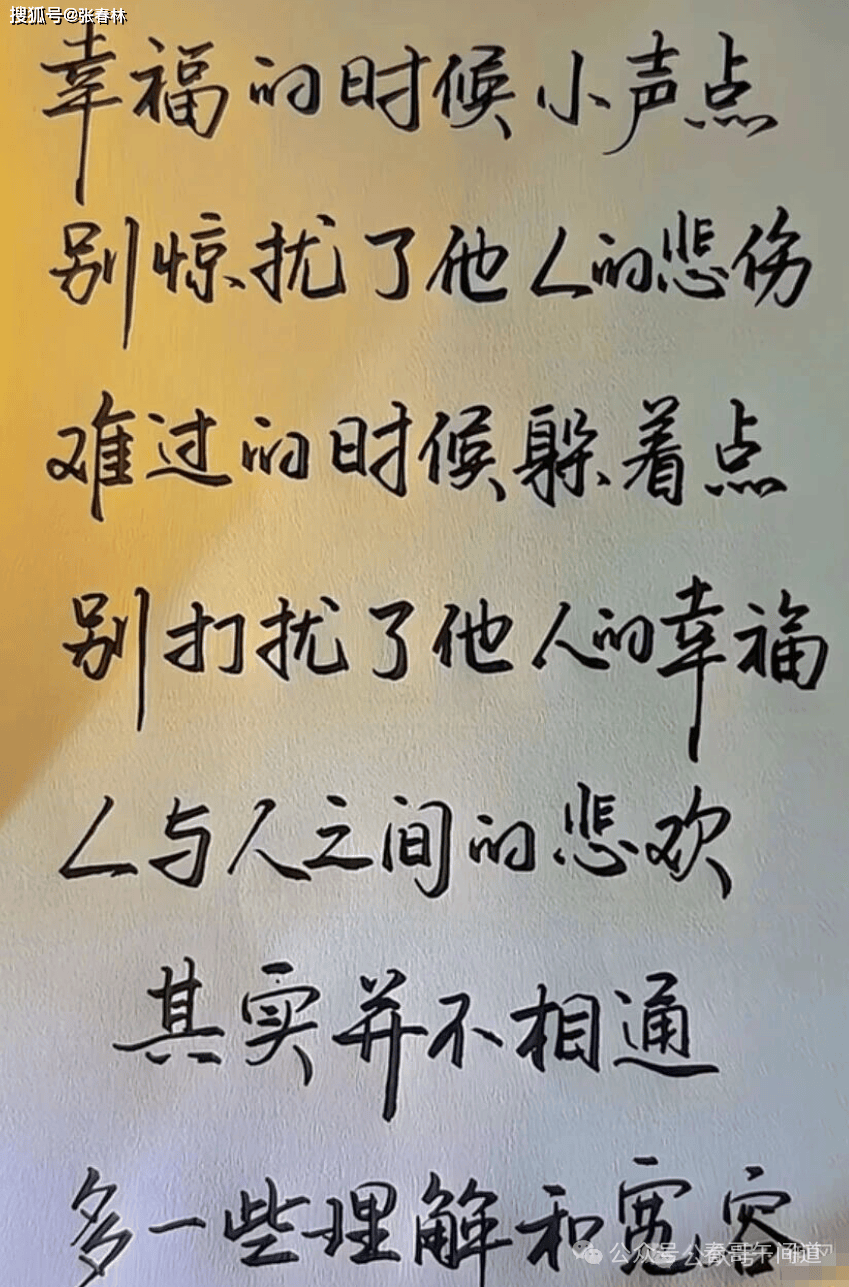 搜狐号@张春林
幸福的时候小声点
别惊扰了他人的悲伤
难过的时候躲着点
别打扰了他人的幸福
人与人之间的悲欢
其实并不相通
多一些理解和宽容
公众号